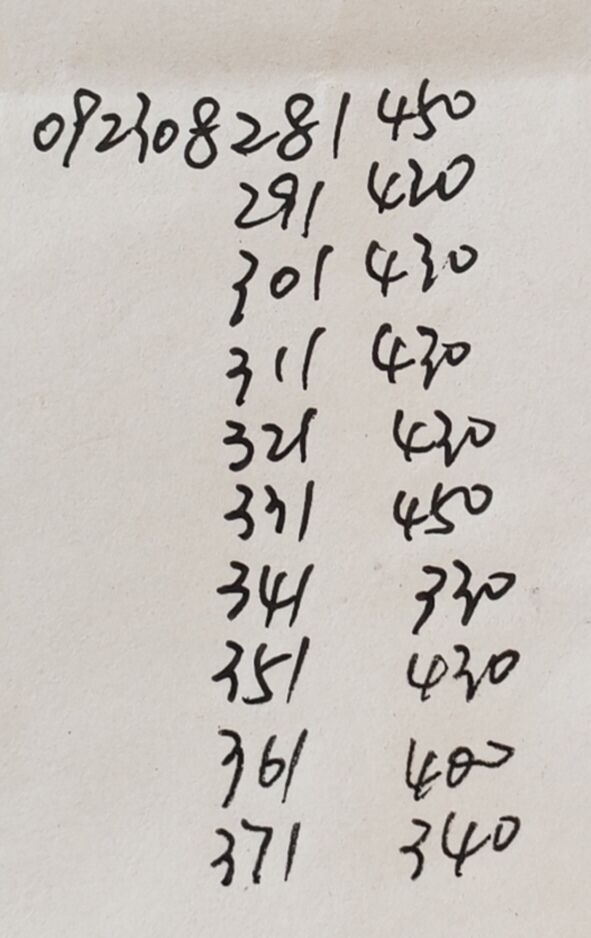 092308281 450
291 420
301 430
311 430
321 430
331 450
341 330
351 430
361 400
371 340